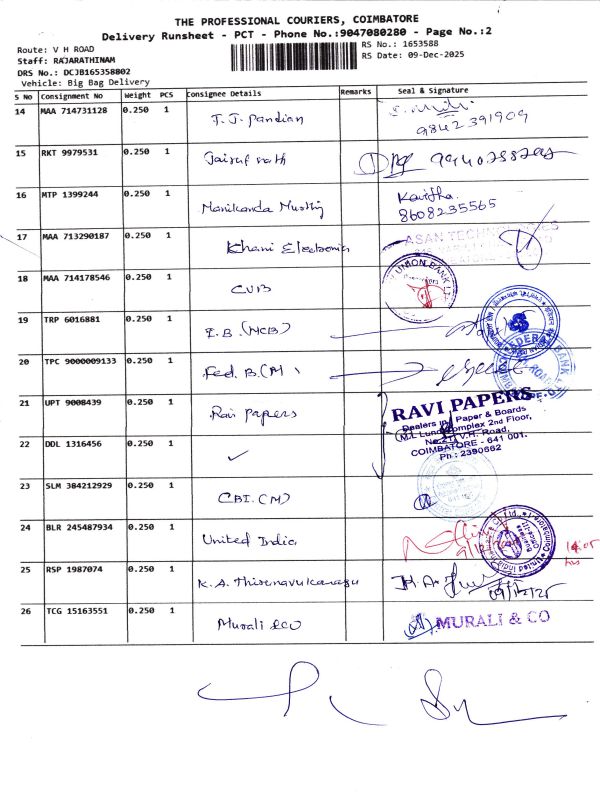 THE PROFESSIONAL COURIERS, COIMBATORE
Delivery Runsheet - PCT - Phone No.:9047080280 - Page No.:2
Route: V H ROAD
RS No.: 1653588
Staff: RAJARATHINAM
RS Date: 09-Dec-2025
DRS No.: DCJB165358802
Vehicle: Big Bag Delivery
S No Consignment No Weight PCS Consignee Details Remarks Seal & Signature
14 MAA 714731128 0.250 1 T. J. Pandian
9842391909
15 RKT 9979531 0.250 1
16 MTP 1399244 0.250 1 Manikanda Kavitha
8608235565
17 MAA 713290187 0.250 1 Khani Electronics ASAN TECHNOLOGIES
18 MAA 714178546 0.250 1 CUB UNION BANK
19 TRP 6016881 0.250 1 I.B. (MCB)
20 TPC 9000009133 0.250 1 Fed. B. (M)
21 UPT 9008439 0.250 1 Ravi papers RAVI PAPERS
Dealers in: Paper & Boards
Complex 2nd Floor,
V.H. Road,
COIMBATORE - 641 001.
Ph : 2390662
22 DDL 1316456 0.250 1 ✓
23 SLM 384212929 0.250 1 CBI. (M)
24 BLR 245487934 0.250 1 United India
14:05
hrs
25 RSP 1987074 0.250 1 K. A. Thirunavukarasu
09/12/25
26 TCG 15163551 0.250 1 Murali &CO MURALI & CO